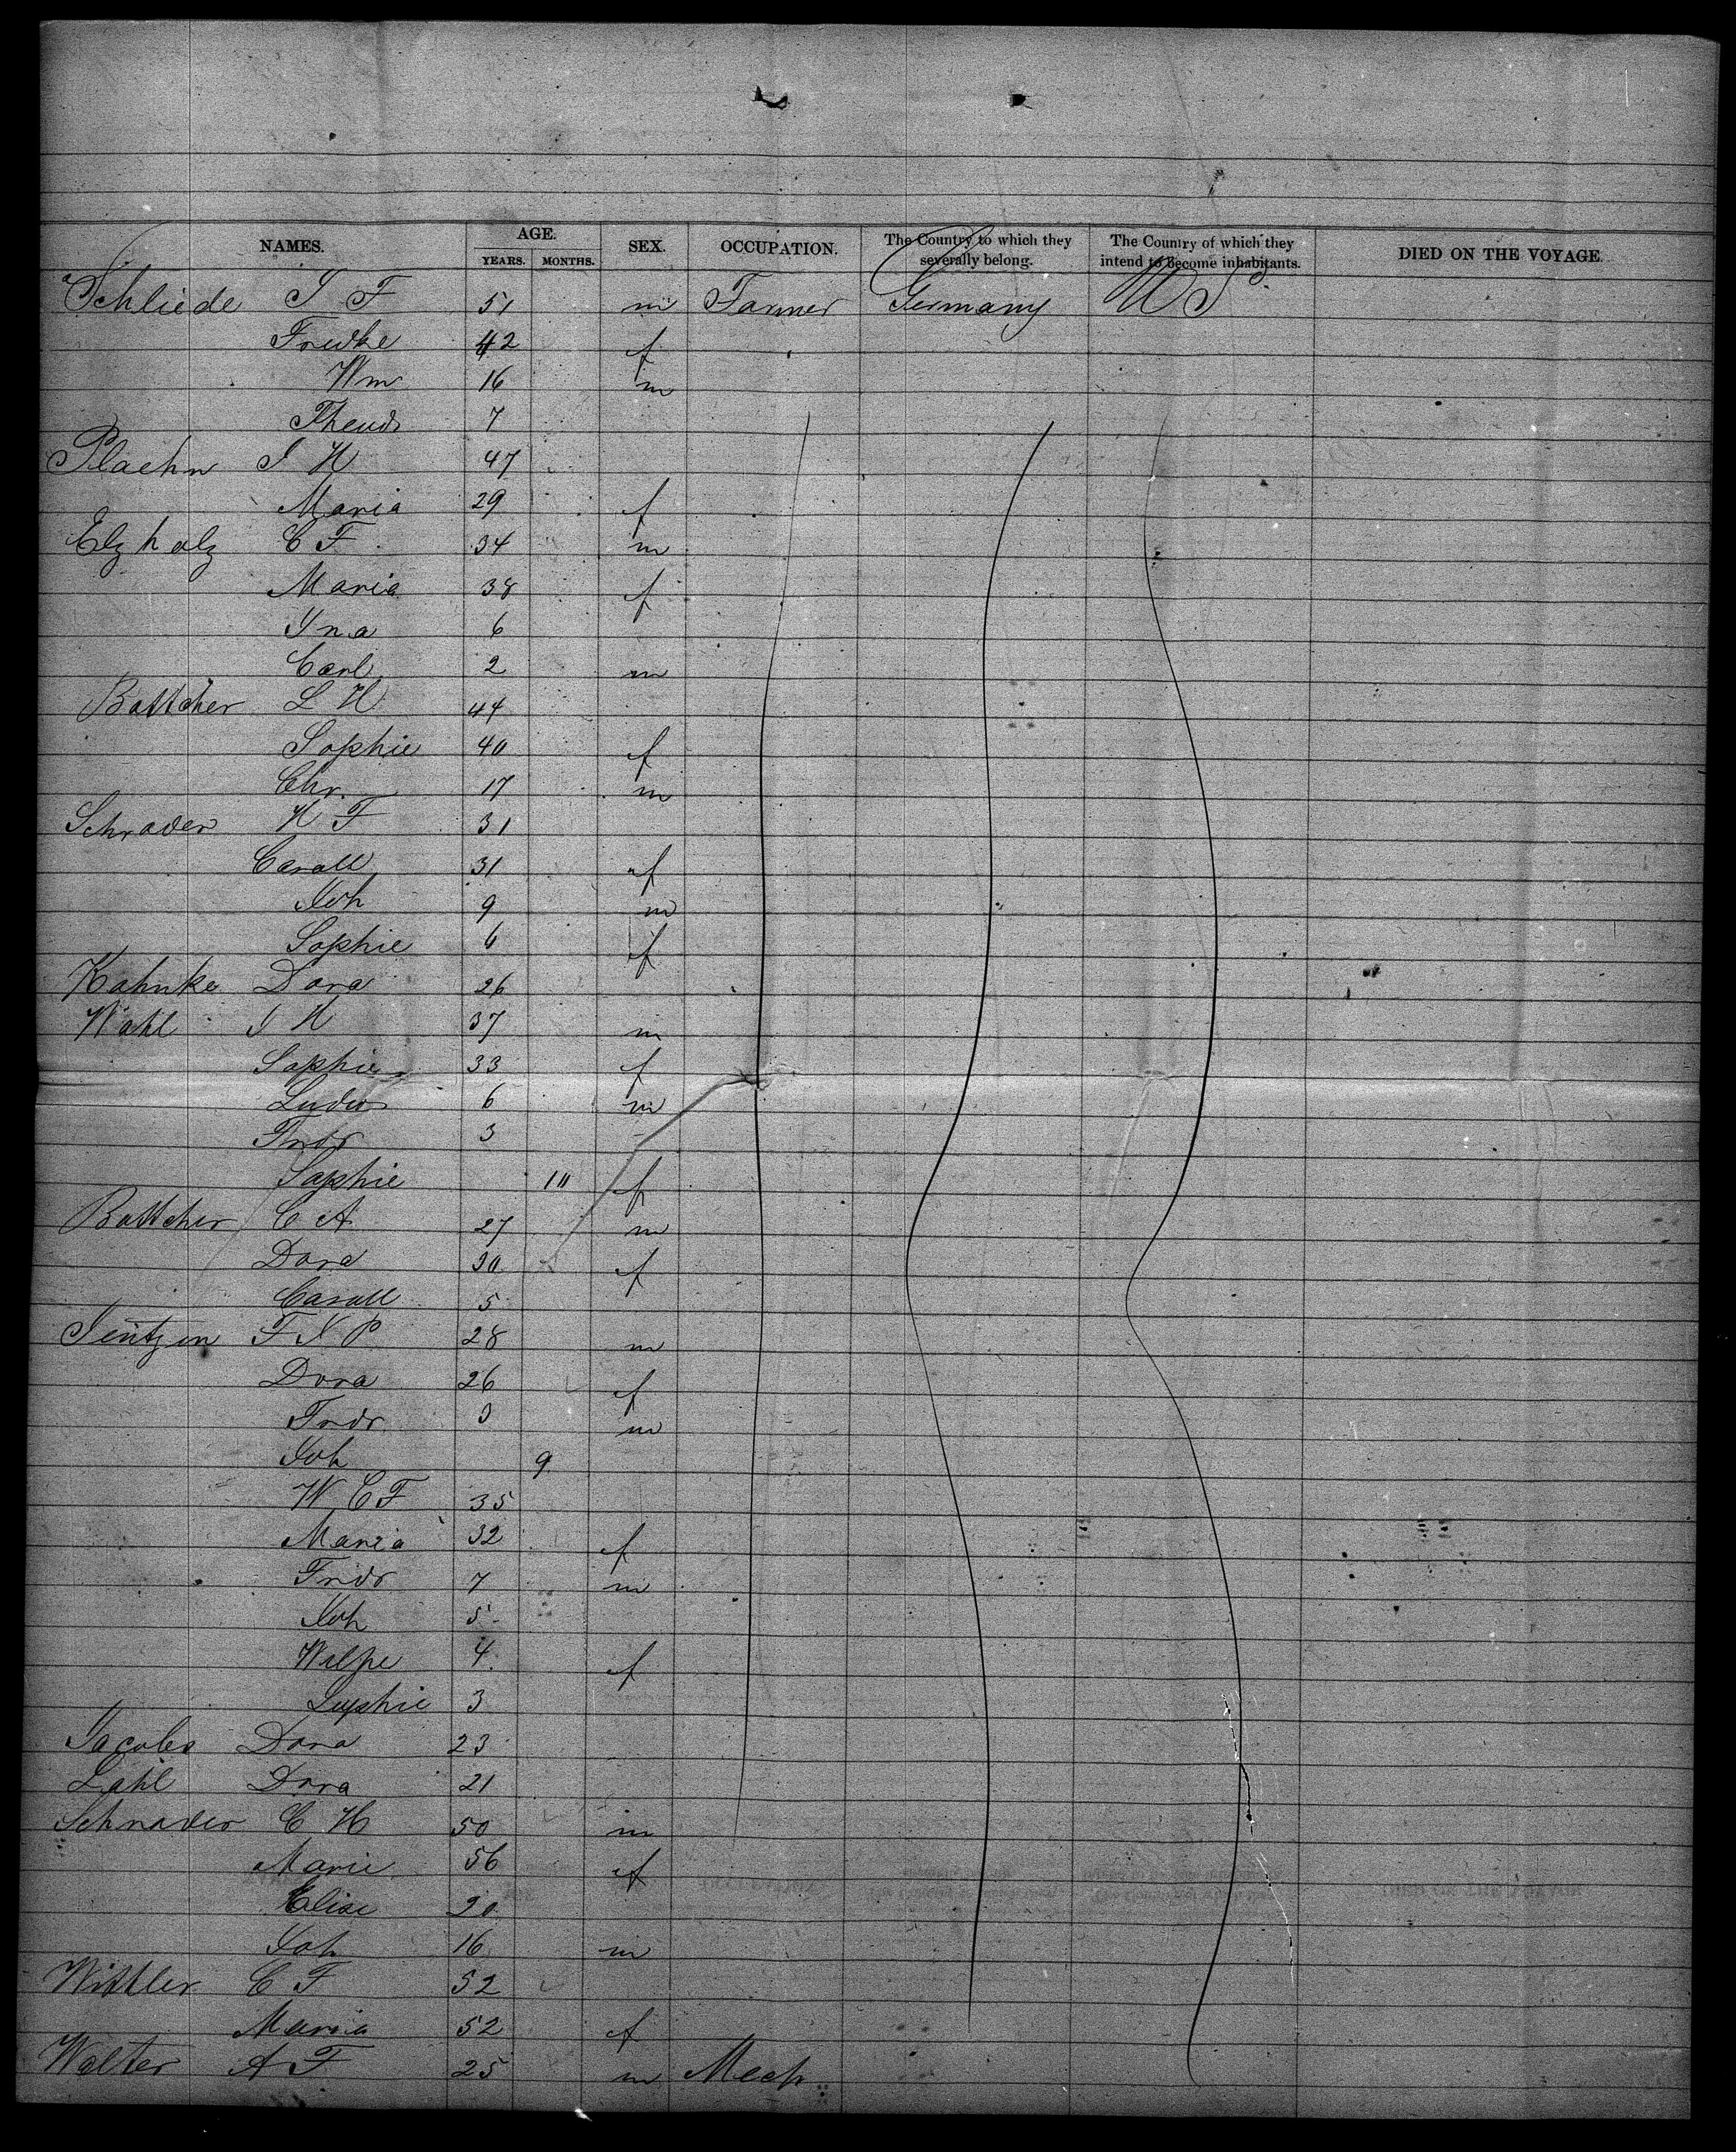 NAMES. AGE. SEX. OCCUPATION. The Country to which they severally belong. The Country of which they intend to become inhabitants. DIED ON THE VOYAGE.
YEARS. MONTHS.
Schliede J F 51 m Farmer Germany U S
Friedke 42 f
Wm 16 m
Theud 7
Plaehn J H 47
Maria 29 f
Elzholz C F 34 m
Maria 38 f
Ina 6
Carl 2 m
Battcher L H 44
Sophie 40 f
Chr. 17 m
Schrader H F 31
Caroll 31 f
Joh 9 m
Sophie 6 f
Kahnke Dora 26
Wahl J H 37 m
Sophie 33 f
Ludw 6 m
Frdr 3
Sophie 10 f
Battcher C A 27 m
Dora 30 f
Caroll 5
Jentzen F N P 28 m
Dora 26 f
Frdr. 3 m
Joh 9
W C F 35
Maria 32 f
Fridr 7 m
Joh 5
Wilhe 4 f
Sophie 3
Jacobs Dora 23
Lahl Dora 21
Schrader C H 50 m
Marie 56 f
Elise 20
Joh 16 m
Wittler C F 52
Maria 52 f
Walter A F 25 m Mech